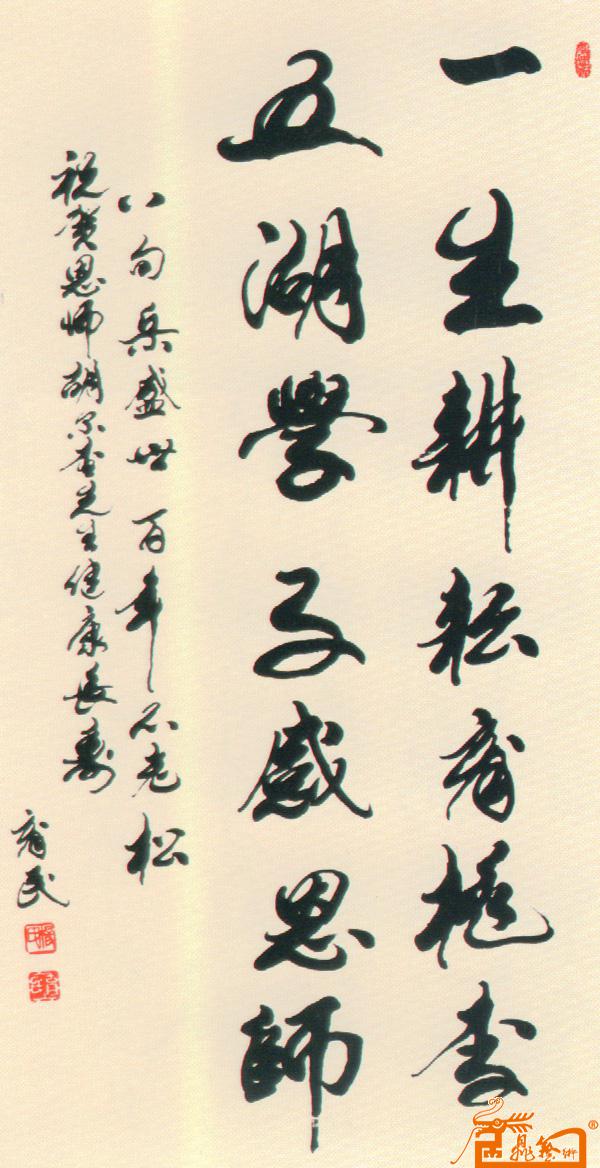 一生耕耘育桃李
五湖學子感恩師
八旬乐盛世百年不老松
祝贺恩师胡尔奎先生健康长寿
育民